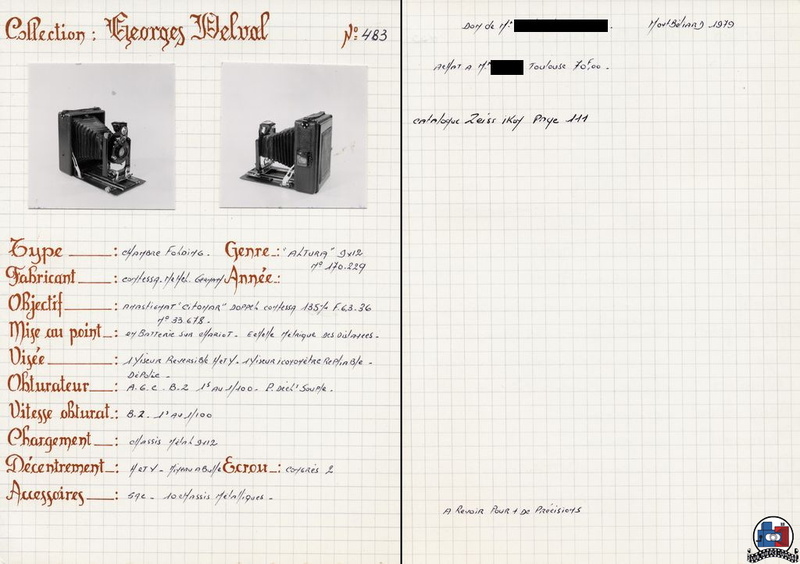 Collection : Georges Delval Nº 483
Type : chambre Folding. Genre : "ALTURA" 9x12
nº 170.229
Fabricant : contessa.Nettel. Germany Année :
Objectif : Anastigmat "Citonar" Doppel contessa 135% F.6.3-36
nº 33.678.
Mise au point : en Batterie sur chariot. Echelle Métrique des Distances.
Visée : 1 Viseur Reversible H et V. 1 Viseur iconomètre Repliable -
Dépolie -
Obturateur : A.G.C. B.2 1s au 1/100. P. Décl' Souple.
Vitesse obturat. : B.2. 1s au 1/100
Chargement : chassis Métal 9x12
Décentrement : H et V - Niveau a Bulle Ecrou : congrès 2
Accessoires : sac - 10 chassis Métalliques -
Don de Mr . Montbéliard 1979
Achat a Mr Toulouse 70F,00 .
Catalogue Zeiss ikon Page 111
A Revoir Pour + de Précisions